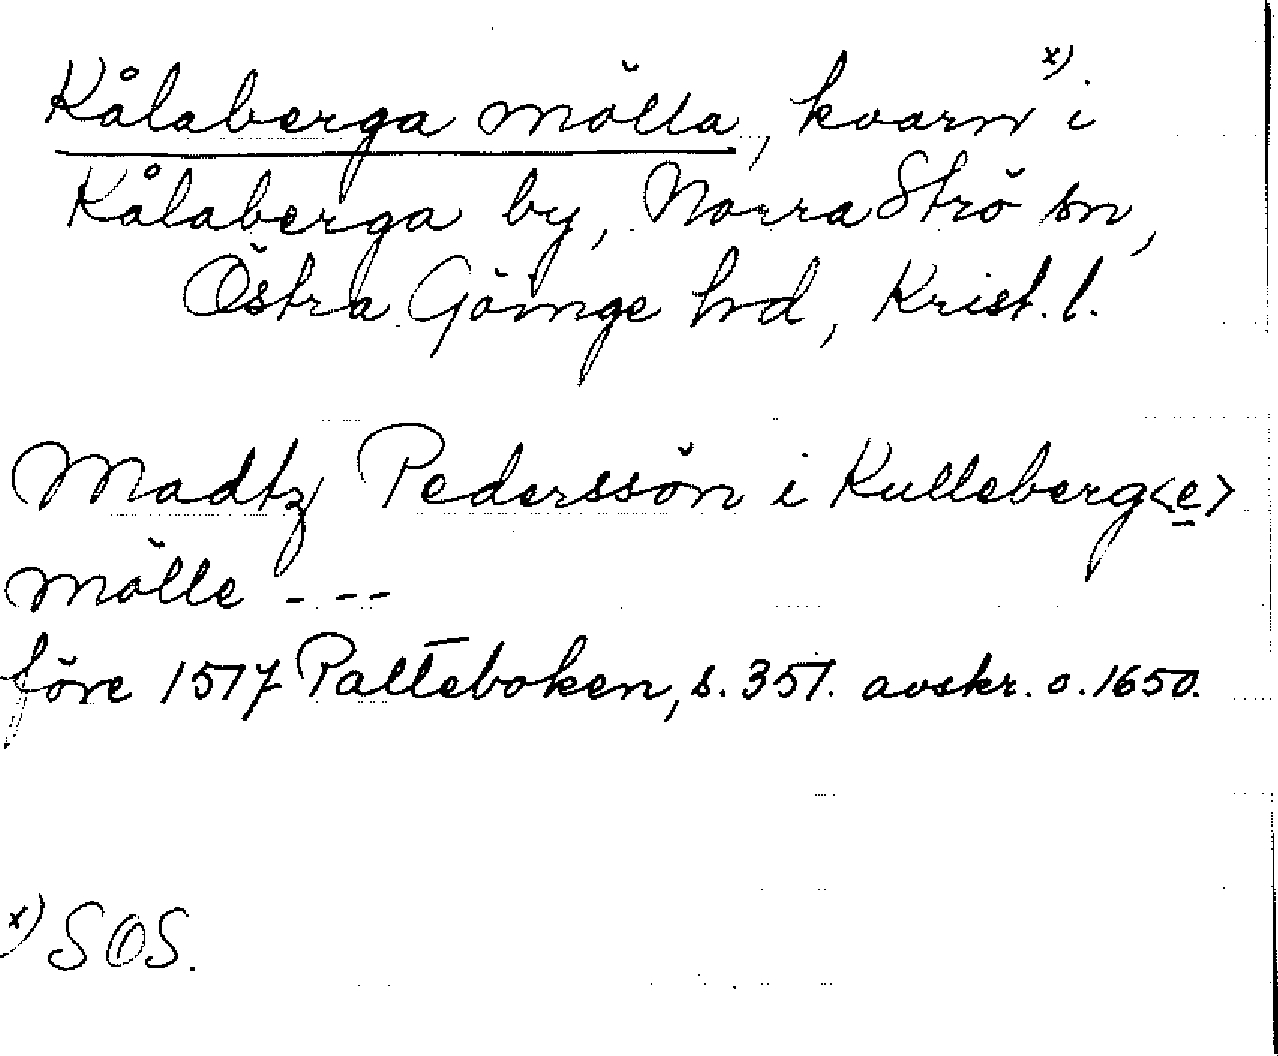 Kålaberga mölla, kvarn x) i
Kålaberga by, Norra Strö sn,
Östra Göinge hrd, Krist. l.
Madtz Pederssön i Kulleberg<e>
mölle - - -
före 1517 Palteboken, s. 357. avskr. o. 1650.
x) SOS.